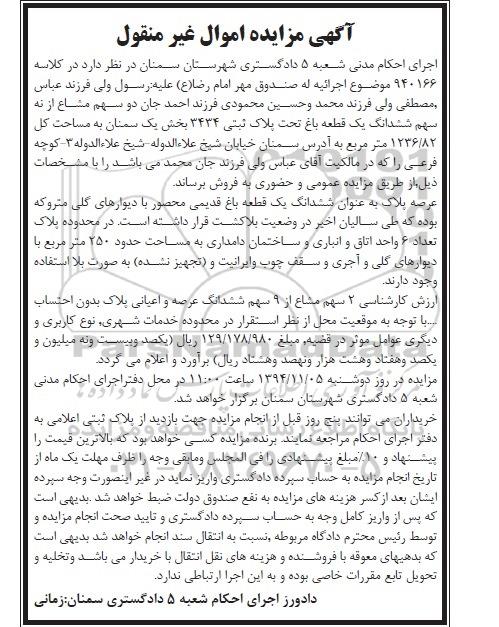 آگهی مزایده اموال غیر منقول
اجرای احکام مدنی شعبه ۵ دادگستری شهرستان سمنان در نظر دارد در کلاسه
۹۴۰۱۶۶ موضوع اجرائیه له صندوق مهر امام رضا(ع) علیه:رسول ولی فرزند عباس
,مصطفی ولی فرزند محمد وحسین محمودی فرزند احمد جان دو سهم مشاع از نه
سهم ششدانگ یک قطعه باغ تحت پلاک ثبتی ۳۴۳۴ بخش یک سمنان به مساحت کل
۱۲۳۶/۸۲ متر مربع به آدرس سمنان خیابان شیخ علاءالدوله-شیخ علاءالدوله۳-کوچه
فرعی را که در مالکیت آقای عباس ولی فرزند جان محمد می باشد را با مشخصات
ذیل,از طریق مزایده عمومی و حضوری به فروش برساند.
عرصه پلاک به عنوان ششدانگ یک قطعه باغ قدیمی محصور با دیوارهای گلی متروکه
بوده که طی سالیان اخیر در وضعیت بلاکشت قرار داشته است. در محدوده پلاک
تعداد ۶ واحد اتاق و انباری و ساختمان دامداری به مساحت حدود ۲۵۰ متر مربع با
دیوارهای گلی و آجری و سقف چوب وایرانیت و (تجهیز نشده) به صورت بلا استفاده
وجود دارند.
ارزش کارشناسی ۲ سهم مشاع از ۹ سهم ششدانگ عرصه و اعیانی پلاک بدون احتساب
....با توجه به موقعیت محل از نظر استقرار در محدوده خدمات شهری, نوع کاربری و
دیگری عوامل موثر در قضیه, مبلغ ۱۲۹/۱۷۸/۹۸۰ ریال (یکصد وبیست ونه میلیون و
یکصد وهفتاد وهشت هزار ونهصد وهشتاد ریال) برآورد و اعلام می گردد.
مزایده در روز دوشنبه ۱۳۹۴/۱۱/۰۵ ساعت ۱۱:۰۰ در محل دفتراجرای احکام مدنی
شعبه ۵ دادگستری شهرستان سمنان برگزار خواهد شد.
خریداران می توانند پنج روز قبل از انجام مزایده جهت بازدید از پلاک ثبتی اعلامی به
دفتر اجرای احکام مراجعه نمایند. برنده مزایده کسی خواهد بود که بالاترین قیمت را
پیشنهاد و ۱۰٪مبلغ پیشنهادی را فی المجلس ومابقی وجه را ظرف مهلت یک ماه از
تاریخ انجام مزایده به حساب سپرده دادگستری واریز نماید در غیر اینصورت وجه سپرده
ایشان بعد ازکسر هزینه های مزایده به نفع صندوق دولت ضبط خواهد شد .بدیهی است
که پس از واریز کامل وجه به حساب سپرده دادگستری و تایید صحت انجام مزایده و
توسط رئیس محترم دادگاه مربوطه ,نسبت به انتقال سند انجام خواهد شد بدیهی است
که بدهیهای معوقه با فروشنده و هزینه های نقل انتقال با خریدار می باشد وتخلیه و
تحویل تابع مقررات خاصی بوده و به این اجرا ارتباطی ندارد.
دادورز اجرای احکام شعبه ۵ دادگستری سمنان:زمانی